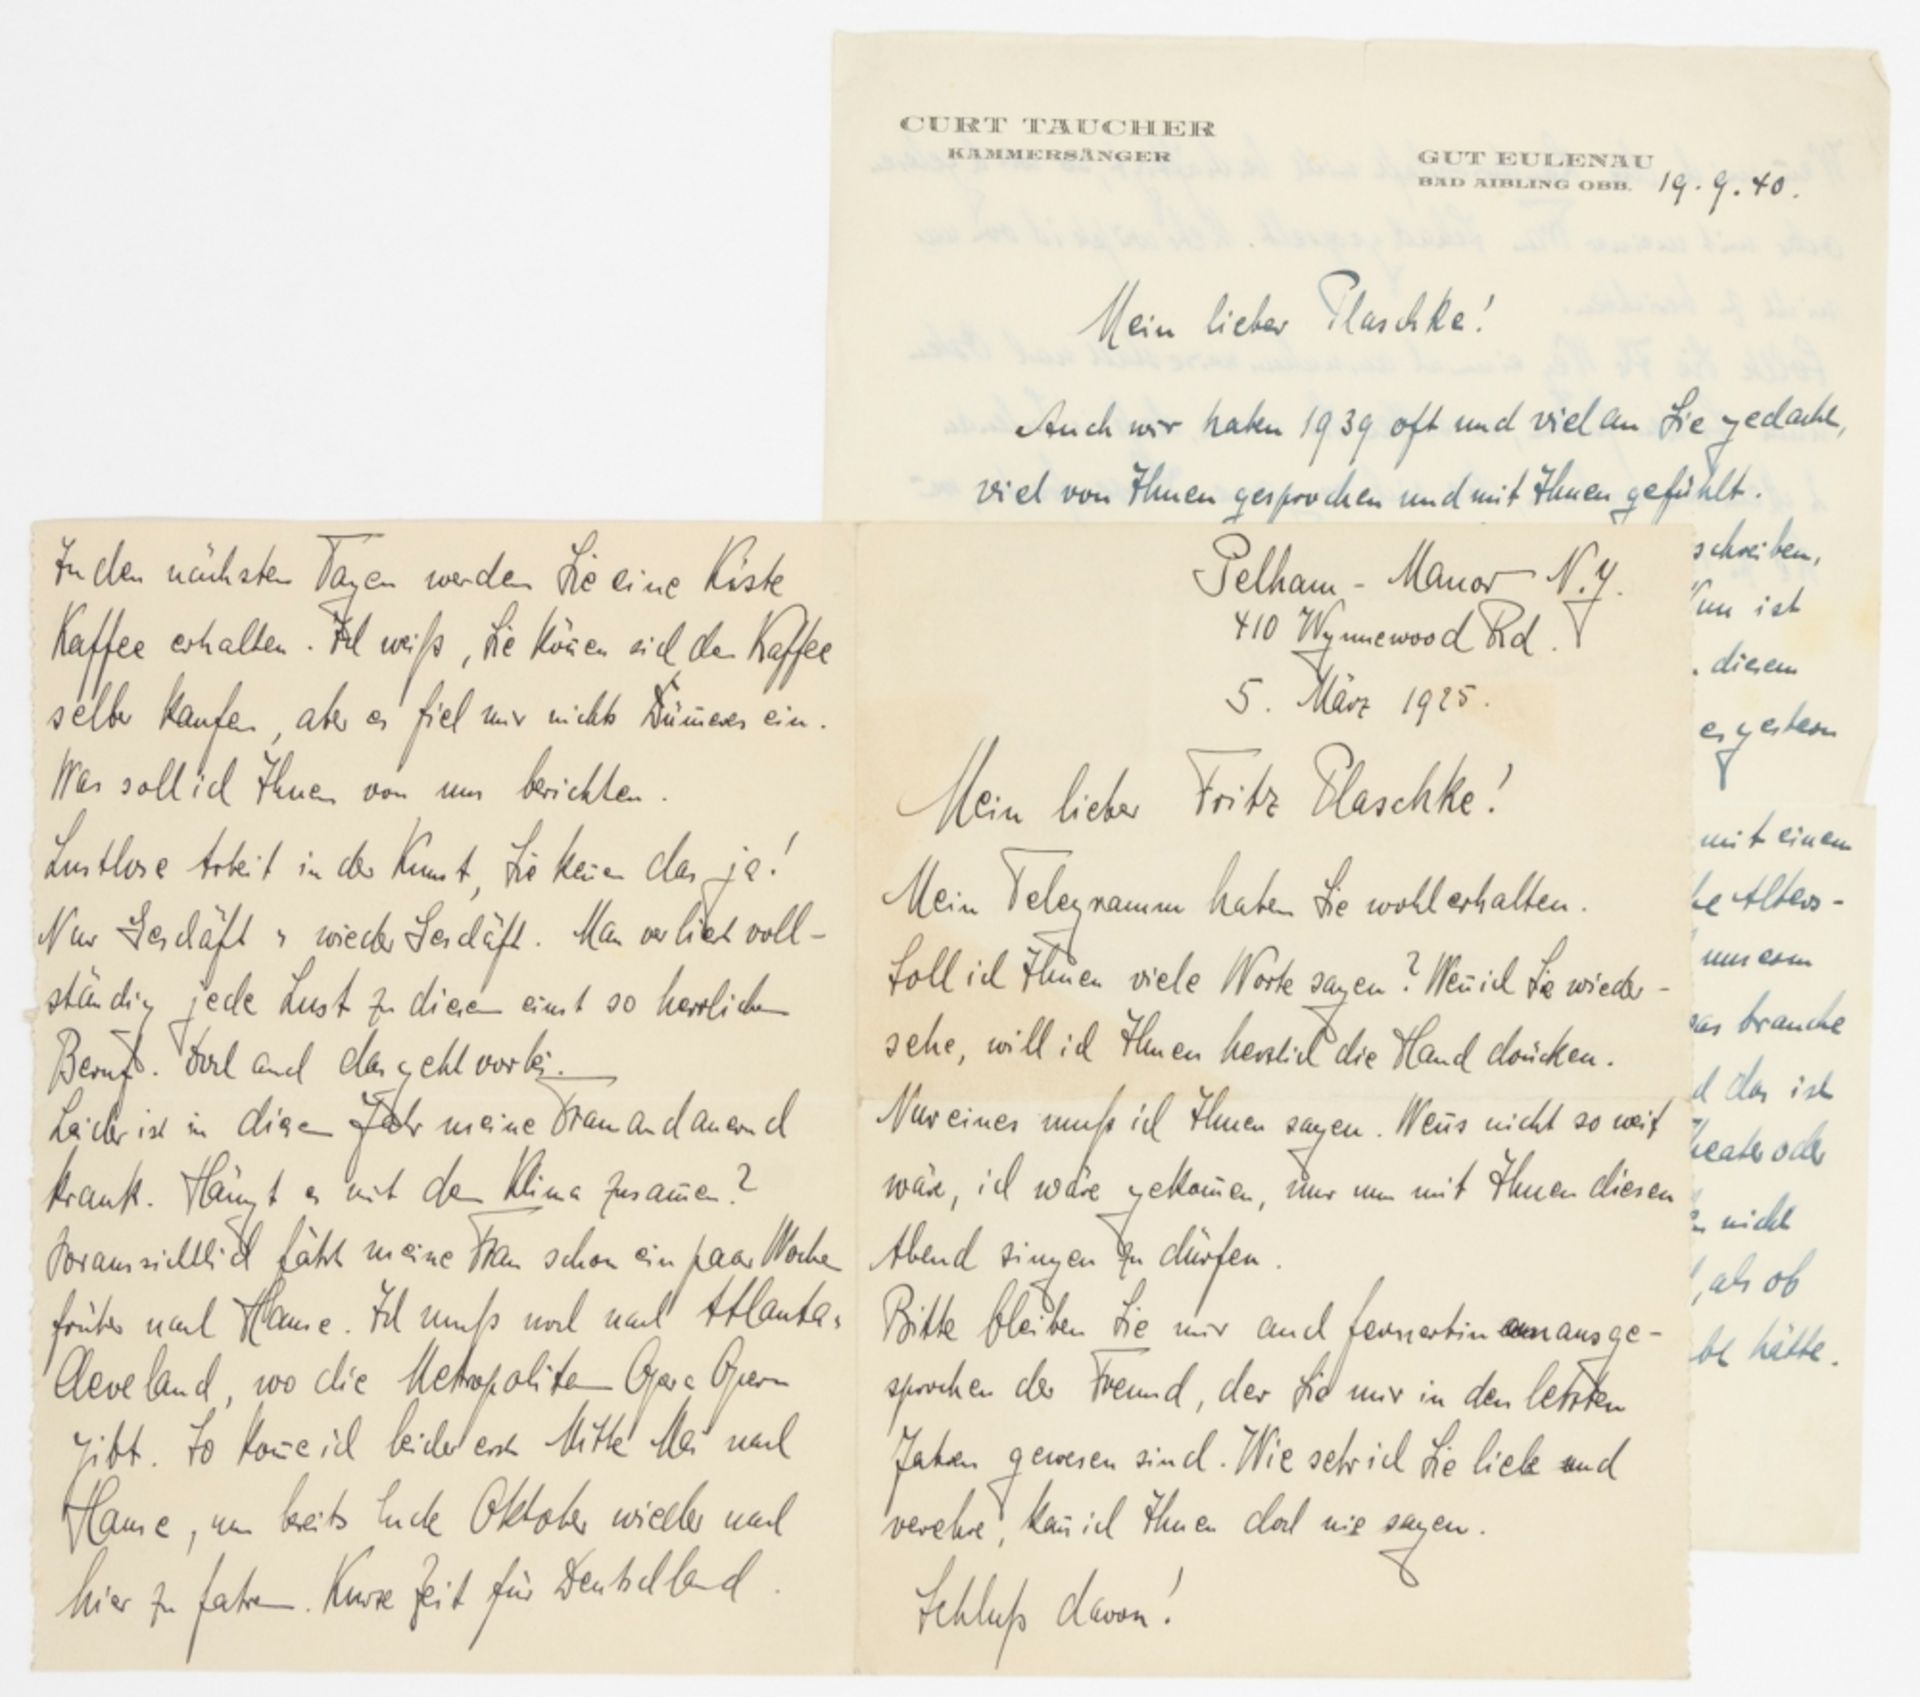 CURT TAUCHER
KAMMERSÄNGER
GUT EULENAU
BAD AIBLING OBB. 19.9.40.
Mein lieber Plaschke!
Auch wir haben 1939 oft und viel an Sie gedacht,
viel von Ihnen gesprochen und mit Ihnen gefühlt.
schreiben,
Nun ist
diesem
es gestern
mit einem
he Alters-
unserm
das brauche
d das ist
heater oder
nicht
, als ob
be hätte.
Pelham-Manor N.Y.
410 Wynnewood Rd.
5. März 1925.
Mein lieber Fritz Plaschke!
Mein Telegramm haben Sie wohl erhalten.
Soll ich Ihnen viele Worte sagen? Wen̄ ich Sie wieder-
sehe, will ich Ihnen herzlich die Hand drücken.
Nur eines muß ich Ihnen sagen. Wen̄s nicht so weit
wäre, ich wäre gekom̄en, nur um mit Ihnen diesen
Abend singen zu dürfen.
Bitte bleiben Sie mir auch fernerhin unausge-
sprochen der Freund, der Sie mir in den letzten
Jahren gewesen sind. Wie sehr ich Sie liebe und
verehre, kan̄ ich Ihnen doch nie sagen.
Schluß davon!
In den nächsten Tagen werden Sie eine Kiste
Kaffee erhalten. Ich weiß, Sie kön̄en sich den Kaffee
selber kaufen, aber es fiel mir nichts Düm̄eres ein.
Was soll ich Ihnen von uns berichten.
Lustlose Arbeit in der Kunst, Sie ken̄en das ja!
Nur Geschäft u wieder Geschäft. Man verliert voll-
ständig jede Lust zu diesem einst so herrlichen
Beruf. Doch auch das geht vorbei.
Leider ist in diesem Jahr meine Frau andauernd
krank. Hängt es mit dem Klima zusam̄en?
Voraussichtlich fährt meine Frau schon ein paar Wochen
früher nach Hause. Ich muß noch nach Atlanta u
Cleveland, wo die Metropolitan Opera Opern
gibt. So kom̄e ich leider erst Mitte Mai nach
Hause, um bereits Ende Oktober wieder nach
hier zu fahren. Kurze Zeit für Deutschland.